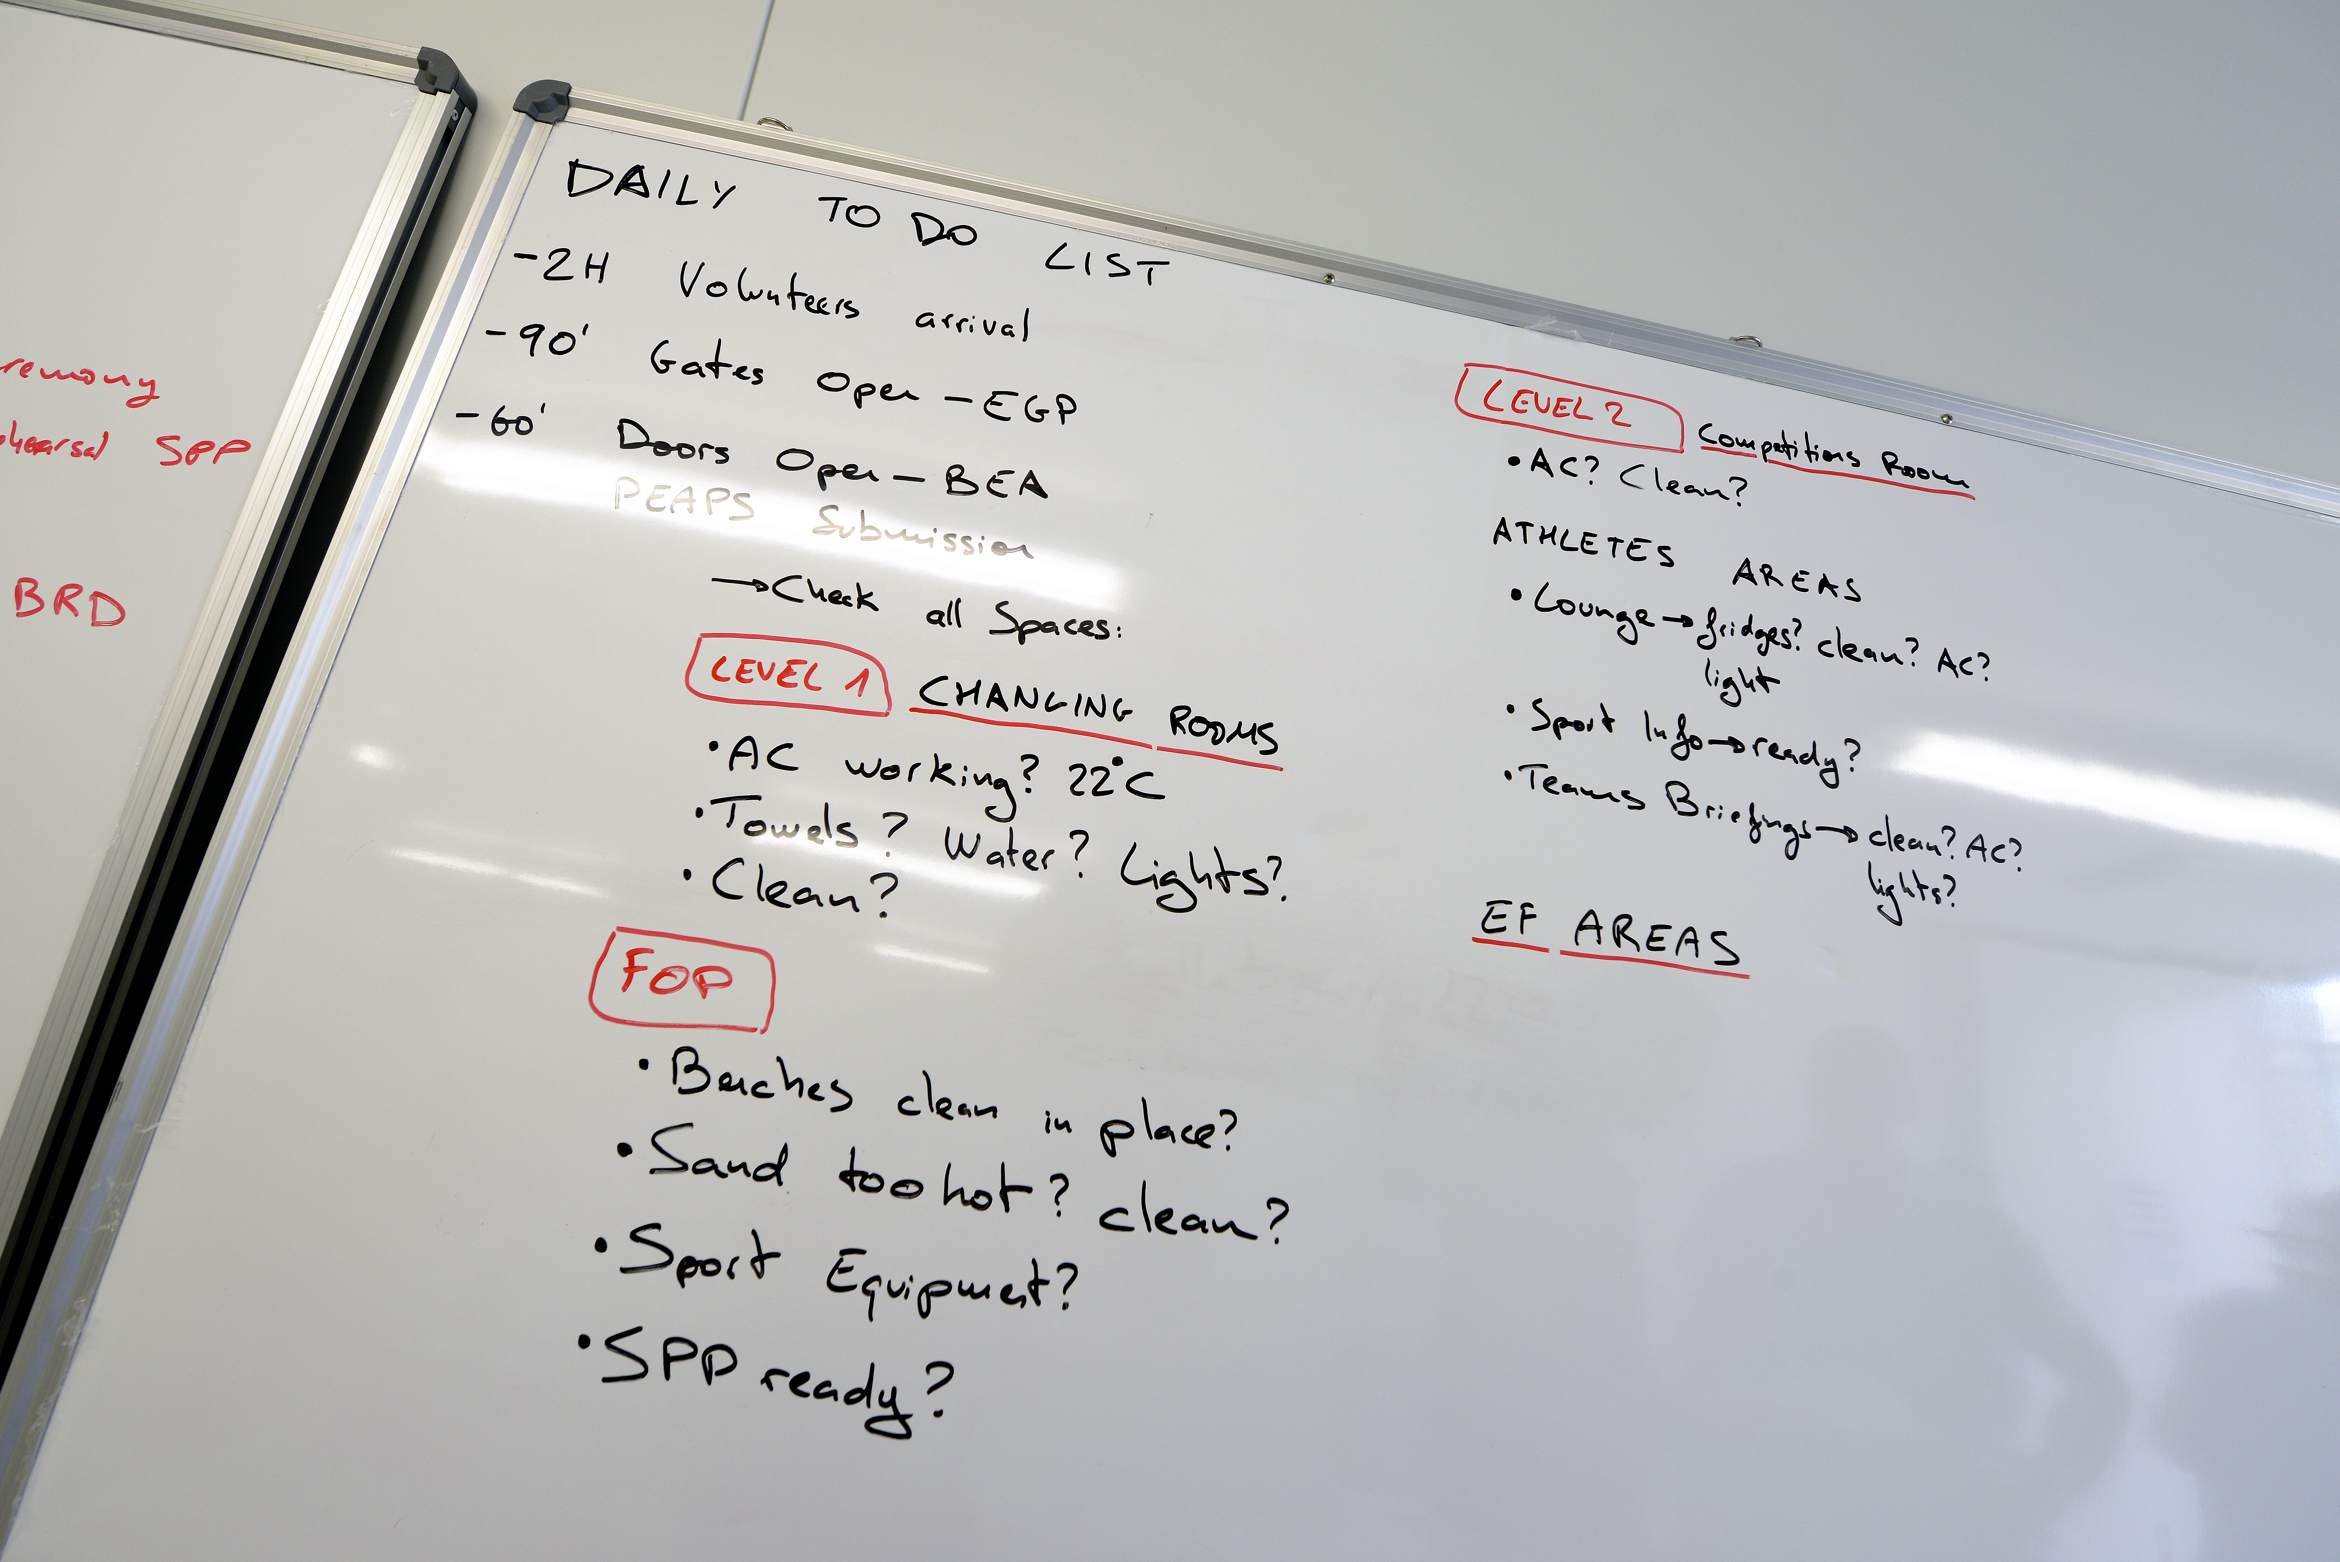 remony
hearsal SPP
BRD
DAILY TO DO LIST
-2H Volunteers arrival
-90' Gates Open - EGP
-60' Doors Open - BEA
PEAPS Submission
→ Check all Spaces:
LEVEL 1 CHANGING ROOMS
• AC working? 22°C
• Towels? Water? Lights?
• Clean?
FOP
• Benches clean in place?
• Sand too hot? clean?
• Sport Equipment?
• SPP ready?
LEVEL 2 Competitions Room
• AC? Clean?
ATHLETES AREAS
• Lounge → fridges? clean? AC?
light
• Sport Info → ready?
• Teams Briefings → clean? AC?
lights?
EF AREAS